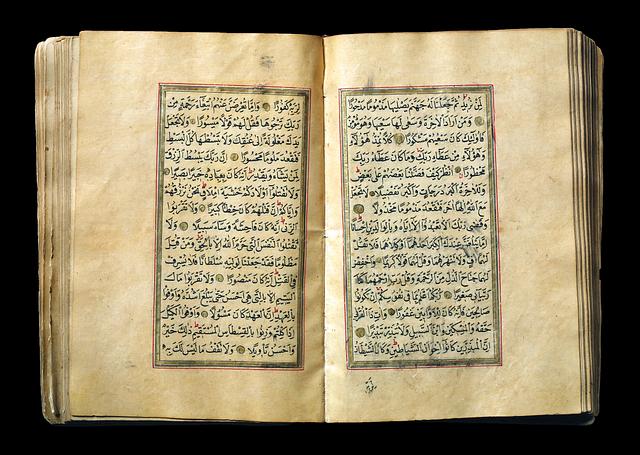 لمن نريد ثم جعلنا له جهنم يصليها مذموما مدحورا
ومن اراد الاخرة وسعى لها سعيها وهو مؤمن
فاولئك كان سعيهم مشكورا كلا نمد هؤلاء
وهؤلاء من عطاء ربك وما كان عطاء ربك
محظورا انظر كيف فضلنا بعضهم على بعض
وللاخرة اكبر درجات واكبر تفضيلا لا تجعل
مع الله الها اخر فتقعد مذموما مخذولا
وقضى ربك الا تعبدوا الا اياه وبالوالدين احسانا
اما يبلغن عندك الكبر احدهما او كلاهما فلا تقل
لهما اف ولا تنهرهما وقل لهما قولا كريما واخفض
لهما جناح الذل من الرحمة وقل رب ارحمهما كما
ربياني صغيرا ربكم اعلم بما في نفوسكم ان تكونوا
صالحين فانه كان للاوابين غفورا وات ذا القربى
حقه والمسكين وابن السبيل ولا تبذر تبذيرا
ان المبذرين كانوا اخوان الشياطين وكان الشيطان
لربه
لربه كفورا واما تعرضن عنهم ابتغاء رحمة من
ربك ترجوها فقل لهم قولا ميسورا ولا تجعل
يدك مغلولة الى عنقك ولا تبسطها كل البسط
فتقعد ملوما محسورا ان ربك يبسط الرزق
لمن يشاء ويقدر انه كان بعباده خبيرا بصيرا
ولا تقتلوا اولادكم خشية املاق نحن نرزقهم
واياكم ان قتلهم كان خطئا كبيرا ولا تقربوا
الزنى انه كان فاحشة وساء سبيلا ولا
تقتلوا النفس التي حرم الله الا بالحق ومن قتل
مظلوما فقد جعلنا لوليه سلطانا فلا يسرف
في القتل انه كان منصورا ولا تقربوا مال
اليتيم الا بالتي هي احسن حتى يبلغ اشده واوفوا
بالعهد ان العهد كان مسئولا واوفوا الكيل
اذا كلتم وزنوا بالقسطاس المستقيم ذلك خير
واحسن تاويلا ولا تقف ما ليس لك به